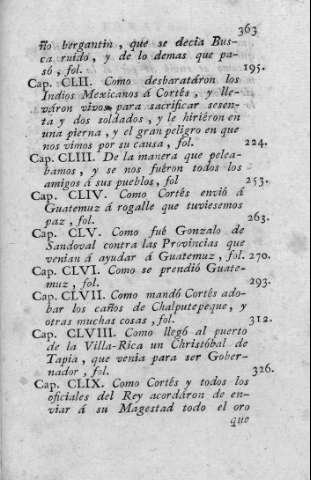 363
ño bergantin, que se decia Bus-
ca ruido, y de lo demas que pa-
só, fol. 195.
Cap. CLII. Como desbaratáron los
Indios Mexicanos á Cortés, y lle-
váron vivos para sacrificar sesen-
ta y dos soldados, y le hiriéron en
una pierna, y el gran peligro en que
nos vimos por su causa, fol. 224.
Cap. CLIII. De la manera que pelea-
bamos, y se nos fuéron todos los
amigos á sus pueblos, fol 253.
Cap. CLIV. Como Cortés envió á
Guatemuz á rogalle que tuviesemos
paz, fol. 263.
Cap. CLV. Como fué Gonzalo de
Sandoval contra las Provincias que
venian á ayudar á Guatemuz, fol. 270.
Cap. CLVI. Como se prendió Guate-
muz, fol. 293.
Cap. CLVII. Como mandó Cortés ado-
bar los caños de Chalputepeque, y
otras muchas cosas, fol. 312.
Cap. CLVIII. Como llegó al puerto
de la Villa-Rica un Christóbal de
Tapia, que venia para ser Gober-
nador, fol. 326.
Cap. CLIX. Como Cortés y todos los
oficiales del Rey acordáron de en-
viar á su Magestad todo el oro
que